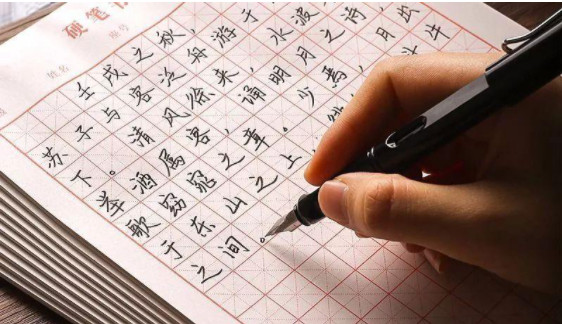 硬笔
姓名
壬戌之秋,
苏子与客泛舟游于
下。清风徐来,水波
举酒属客,诵明月之诗,
歌窈窕之章。少焉,月出
于东山之上,斗牛
之间。